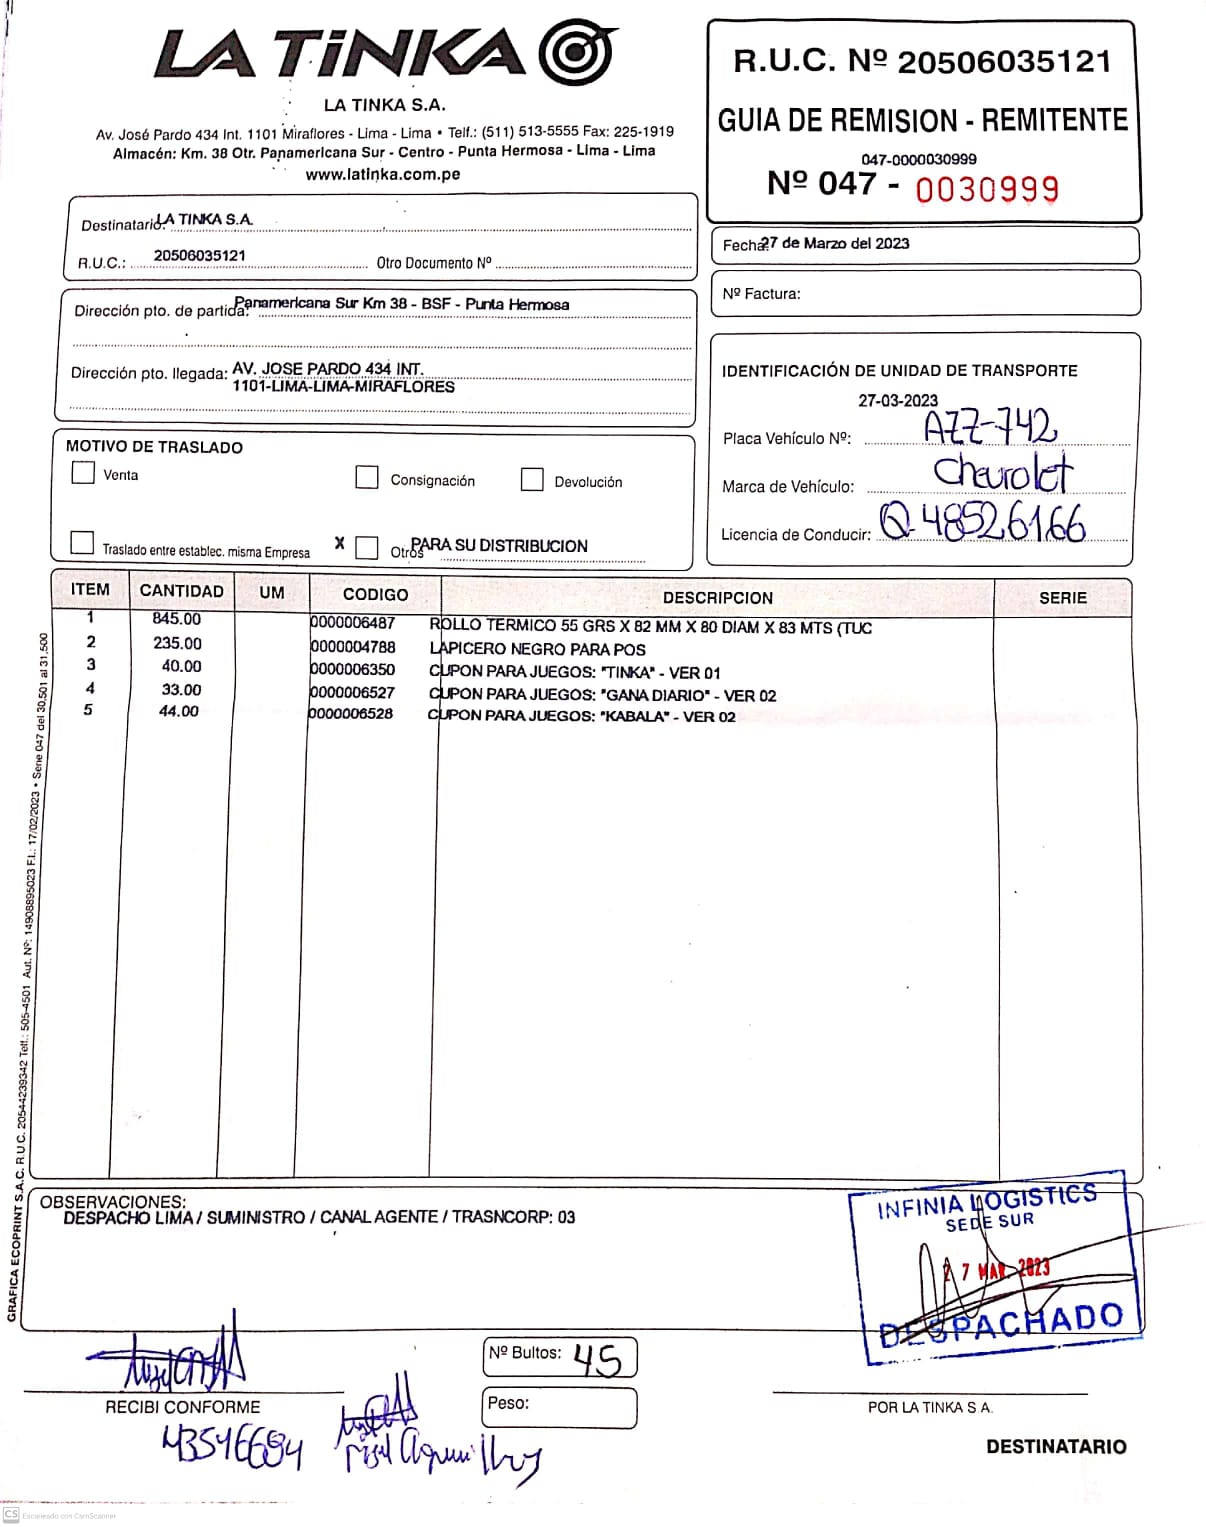 LA TiNKA
LA TINKA S.A.
Av. José Pardo 434 Int. 1101 Miraflores - Lima - Lima • Telf.: (511) 513-5555 Fax: 225-1919
Almacén: Km. 38 Otr. Panamericana Sur - Centro - Punta Hermosa - Lima - Lima
www.latinka.com.pe
R.U.C. Nº 20506035121
GUIA DE REMISION - REMITENTE
047-0000030999
Nº 047 - 0030999
Destinatario: LA TINKA S.A.
R.U.C.: 20506035121 Otro Documento Nº
Fecha: 27 de Marzo del 2023
Nº Factura:
Dirección pto. de partida: Panamericana Sur Km 38 - BSF - Punta Hermosa
Dirección pto. llegada: AV. JOSE PARDO 434 INT.
1101-LIMA-LIMA-MIRAFLORES
IDENTIFICACIÓN DE UNIDAD DE TRANSPORTE
27-03-2023
Placa Vehículo Nº: AZZ-742
Marca de Vehículo: Chevrolet
Licencia de Conducir: Q 48526166
MOTIVO DE TRASLADO
Venta Consignación Devolución
Traslado entre establec. misma Empresa X Otros PARA SU DISTRIBUCION
ITEM CANTIDAD UM CODIGO DESCRIPCION SERIE
1 845.00 0000006487 ROLLO TERMICO 55 GRS X 82 MM X 80 DIAM X 83 MTS (TUC
2 235.00 0000004788 LAPICERO NEGRO PARA POS
3 40.00 0000006350 CUPON PARA JUEGOS: "TINKA" - VER 01
4 33.00 0000006527 CUPON PARA JUEGOS: "GANA DIARIO" - VER 02
5 44.00 0000006528 CUPON PARA JUEGOS: "KABALA" - VER 02
GRAFICA ECOPRINT S.A.C. R.U.C. 20544239342 Telf.: 505-4501 Aut. Nº: 14908895023 F.I.: 17/02/2023 • Serie 047 del 30,501 al 31,500
OBSERVACIONES:
DESPACHO LIMA / SUMINISTRO / CANAL AGENTE / TRASNCORP: 03
INFINIA LOGISTICS
SEDE SUR
27 MAR. 2023
DESPACHADO
Nº Bultos: 45
Peso:
RECIBI CONFORME
43546684
POR LA TINKA S.A.
DESTINATARIO
CS Escaneado con CamScanner